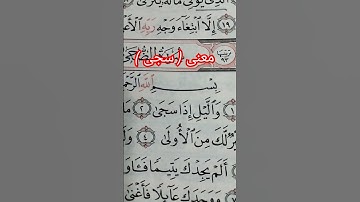 الَّذِى يُؤْتِى مَالَهُ يَتَزَكَّى
١٩ إِلَّا ٱبْتِغَآءَ وَجْهِ رَبِّهِ ٱلْأَعْ
معنى (سجى)
بِسْمِ ٱللَّهِ ٱلرَّحْمَ
وَٱلَّيْلِ إِذَا سَجَىٰ ٢
لَّكَ مِنَ ٱلْأُولَىٰ ٤ وَلَ
أَلَمْ يَجِدْكَ يَتِيمًا فَـَٔاوَ
وَوَجَدَكَ عَآئِلًا فَأَغْنَىٰ